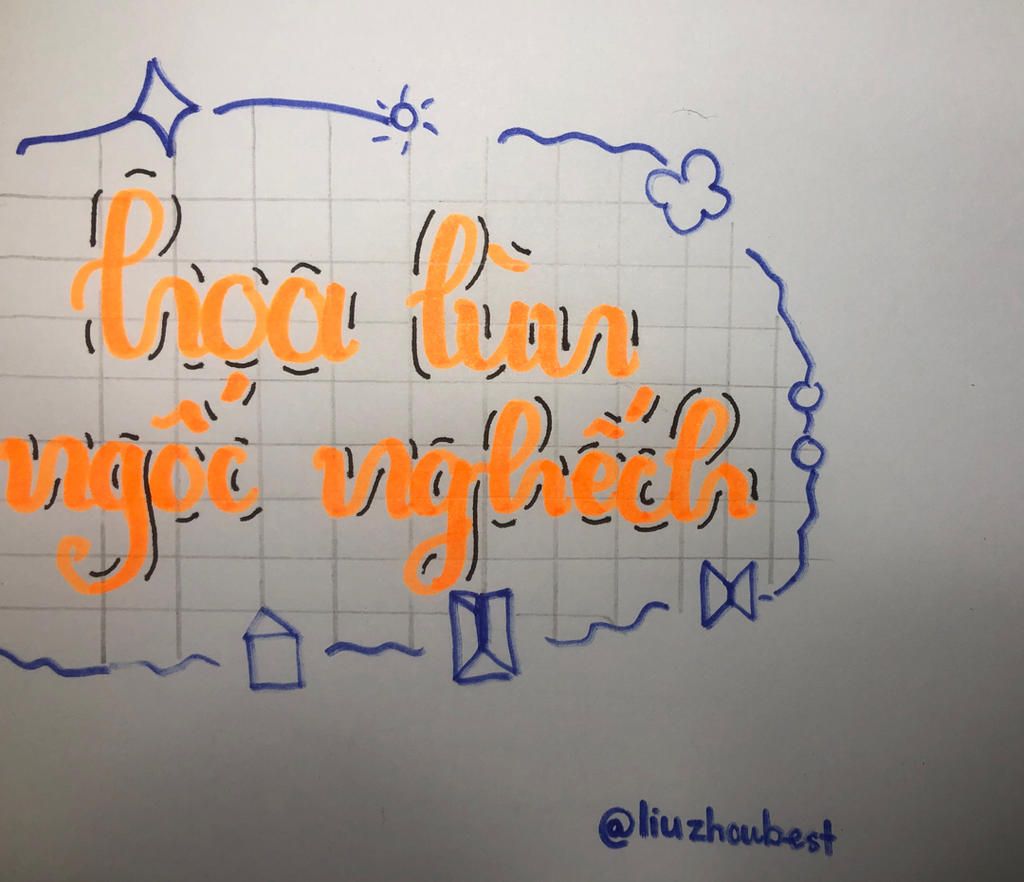 hoa lùn
ngốc nghếch
@liuzhoubest